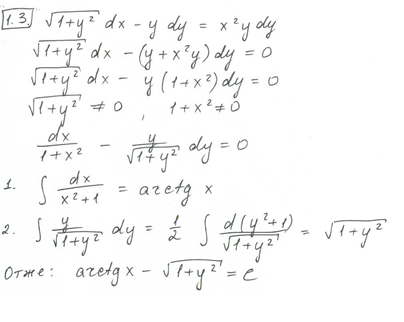 1.3. √(1+y²) dx - y dy = x² y dy
√(1+y²) dx - (y + x²y) dy = 0
√(1+y²) dx - y (1+x²) dy = 0
√(1+y²) ≠ 0 , 1+x² ≠ 0
dx/(1+x²) - y/√(1+y²) dy = 0
1. ∫ dx/(x²+1) = arctg x
2. ∫ y/√(1+y²) dy = 1/2 ∫ d(y²+1)/√(1+y²) = √(1+y²)
Отже: arctg x - √(1+y²) = C